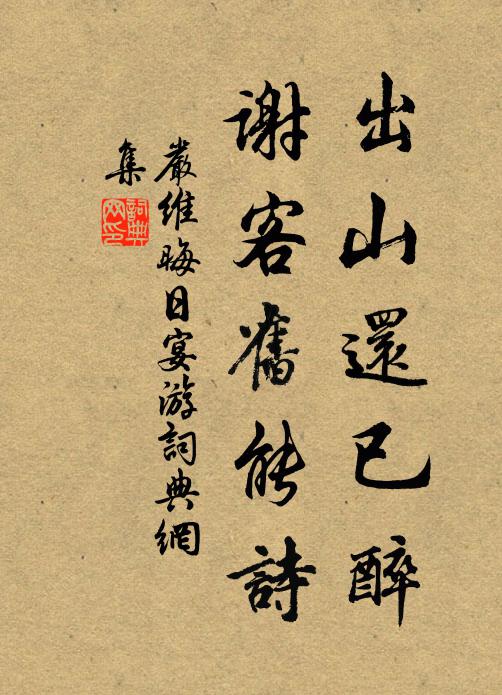 出山還已醉
謝客舊能詩
嚴維晦日宴游詞典網
集
詞典
网印